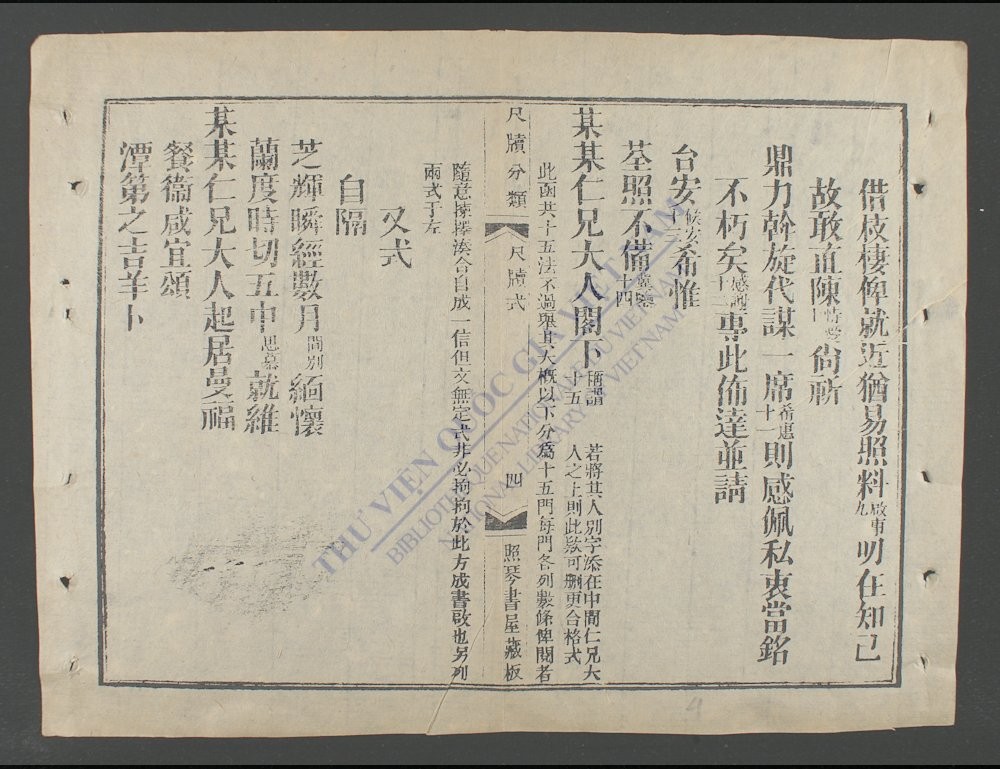 借枝棲俾就近猶易照料啟事九明在知己
故敢直陳情受十尙祈
鼎力斡旋代謀一席希惠十一則感佩私衷當銘
不朽矣感謝十二專此佈達並請
台安候安十三希惟
荃照不備鑒十四
某某仁兄大人閣下稱謂十五 若將其人別字添在中間仁兄大
人之上則此欵可刪更合格式
此函共十五法不過舉其大概以下分爲十五門每門各列數條俾閱者
尺牘分類 尺牘式 四 照琴書屋藏板
隨意揀擇湊合自成一信但文無定式非必拘拘於此方成書啟也另列
兩式于左
又式
自隔
芝輝瞬經數月間別緬懷
蘭度時切五中思慕就維
某某仁兄大人起居曼福
餐衞咸宜頌
潭第之吉羊卜
THƯ VIỆN QUỐC GIA VIỆT NAM
BIBLIOTHÈQUE NATIONALE DU VIETNAM
NATIONAL LIBRARY OF VIETNAM